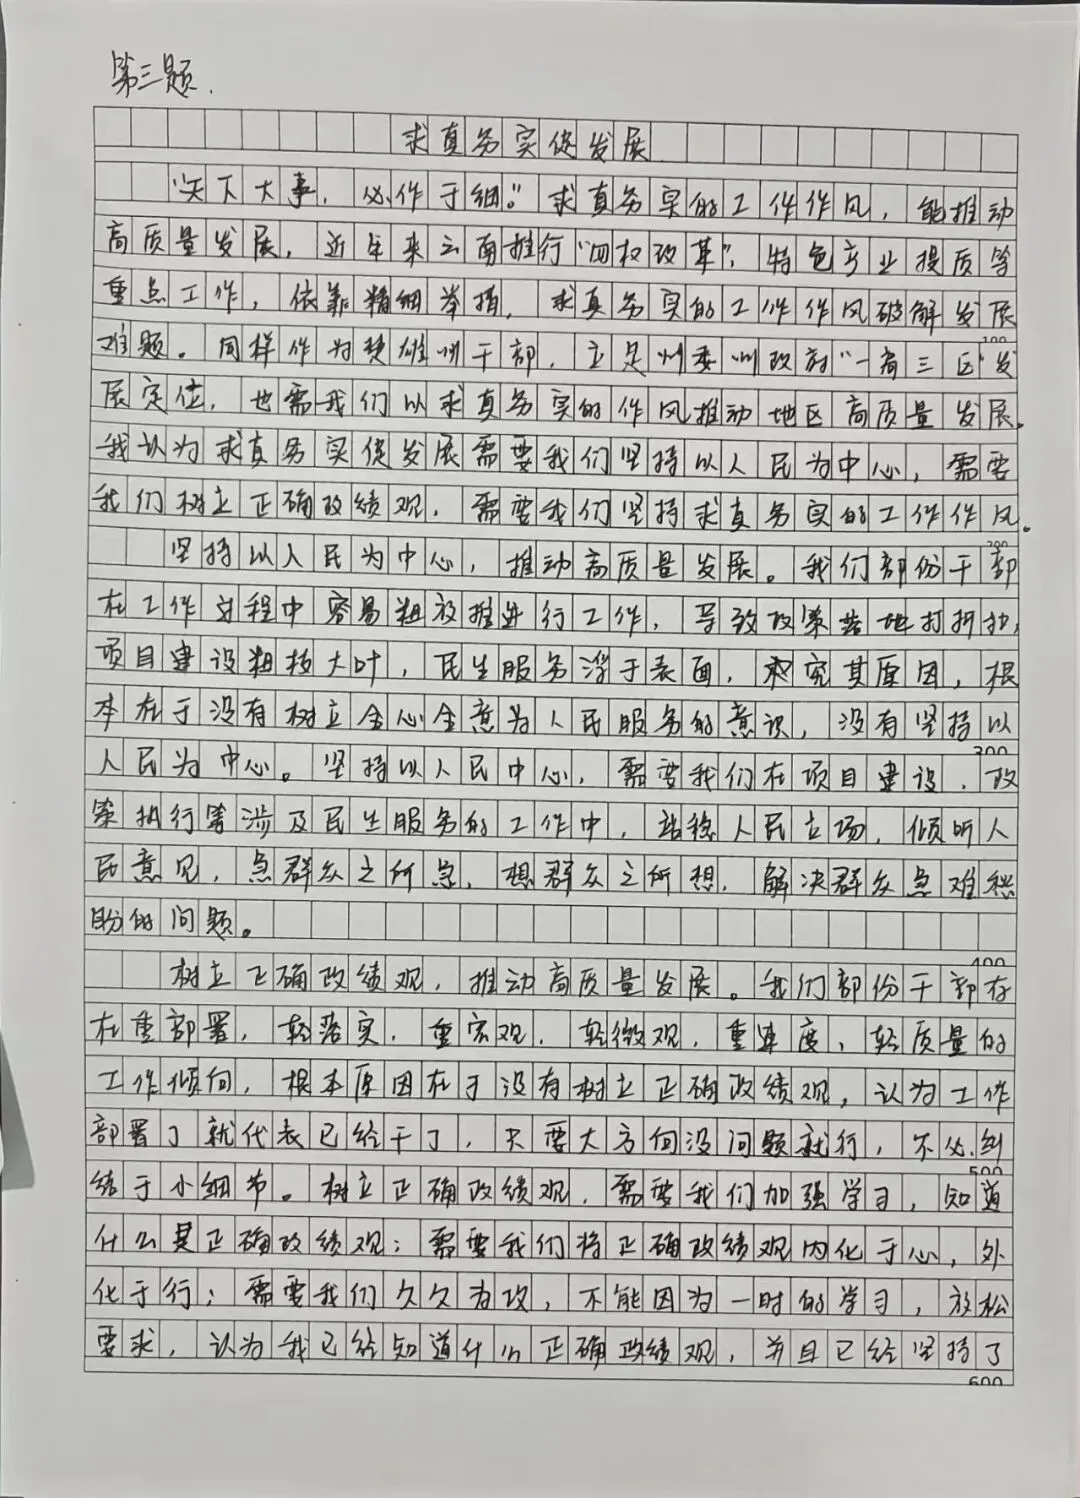 第三题.
求真务实促发展
“天下大事，必作于细。”求真务实的工作作风，能推动
高质量发展，近年来云南推行“四权改革”，特色产业提质等
重点工作，依靠精细举措，求真务实的工作作风破解发展
100
难题。同样作为楚雄州干部，立足州委州政府“一商三区”发
展定位，也需我们以求真务实的作风推动地区高质量发展。
我认为求真务实促发展需要我们坚持以人民为中心，需要
我们树立正确政绩观，需要我们坚持求真务实的工作作风。
200
坚持以人民为中心，推动高质量发展。我们部份干部
在工作过程中容易粗放推进行工作，导致政策落地打折扣，
项目建设粗枝大叶，民生服务浮于表面，究其原因，根
本在于没有树立全心全意为人民服务的意识，没有坚持以
300
人民为中心。坚持以人民中心，需要我们在项目建设、政
策执行等涉及民生服务的工作中，站稳人民立场，倾听人
民意见，急群众之所急，想群众之所想，解决群众急难愁
盼的问题。
400
树立正确政绩观，推动高质量发展。我们部份干部存
在重部署，轻落实，重宏观，轻微观，重速度、轻质量的
工作倾向，根本原因在于没有树立正确政绩观，认为工作
部署了就代表已经干了，只要大方向没问题就行，不必纠
500
结于小细节。树立正确政绩观，需要我们加强学习，知道
什么是正确政绩观；需要我们将正确政绩观内化于心，外
化于行；需要我们久久为攻，不能因为一时的学习，放松
要求，认为我已经知道什么正确政绩观，并且已经坚持了
600